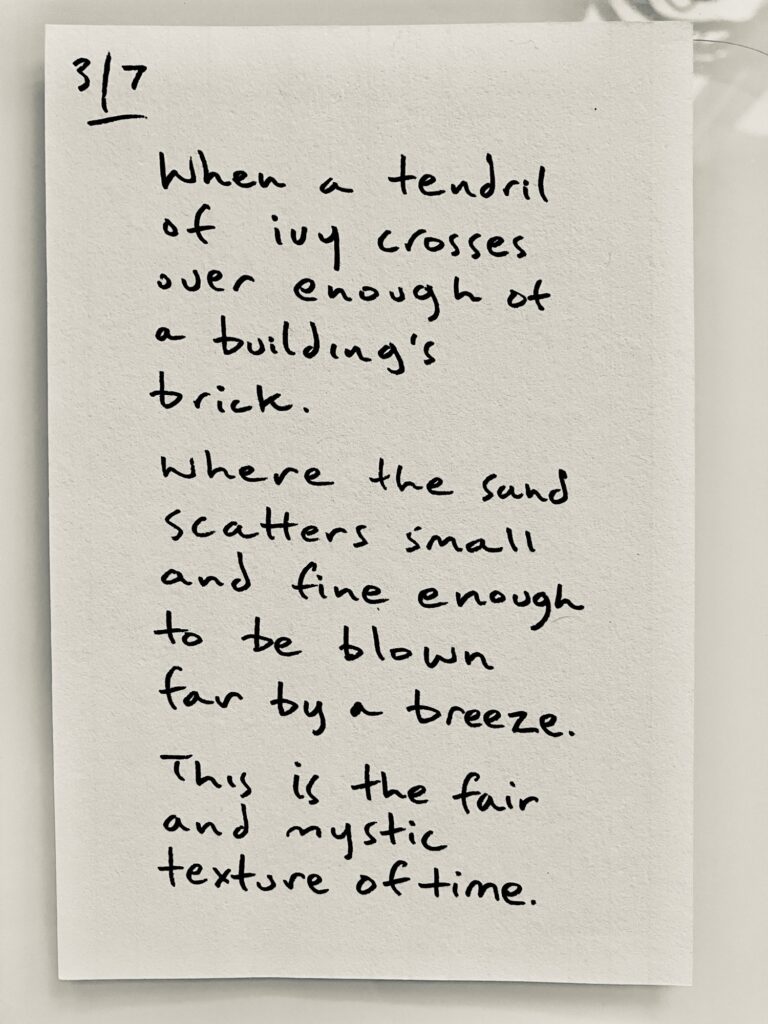 3/7
When a tendril
of ivy crosses
over enough of
a building's
brick.
Where the sand
scatters small
and fine enough
to be blown
far by a breeze.
This is the fair
and mystic
texture of time.